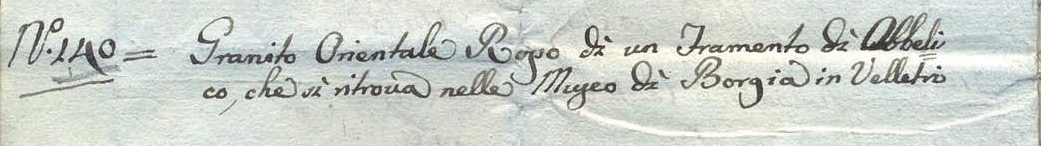 N.º 140 = Granito Orientale Roſso di un Framento di Abbeli=
co, che si ritrova nelle Muſeo di Borgia in Velletri